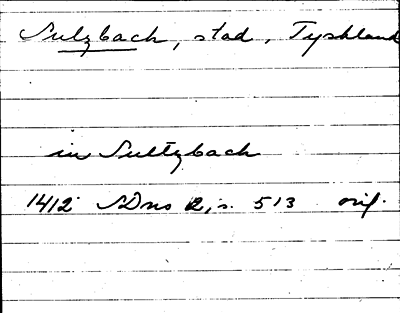 Sulzbach, stad, Tyskland
in Sultzbach
1412 SDns 2, s. 513 orig.